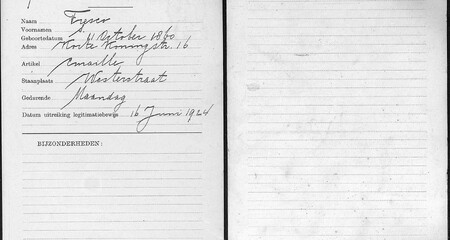 Naam Fysco
Voornamen S.
Geboortedatum 11 October 1860
Adres Korte Koningstr. 16
Artikel emaille
Staanplaats Westerstraat
Gedurende Maandag
Datum uitreiking legitimatiebewijs 16 Juni 1924
BIJZONDERHEDEN: